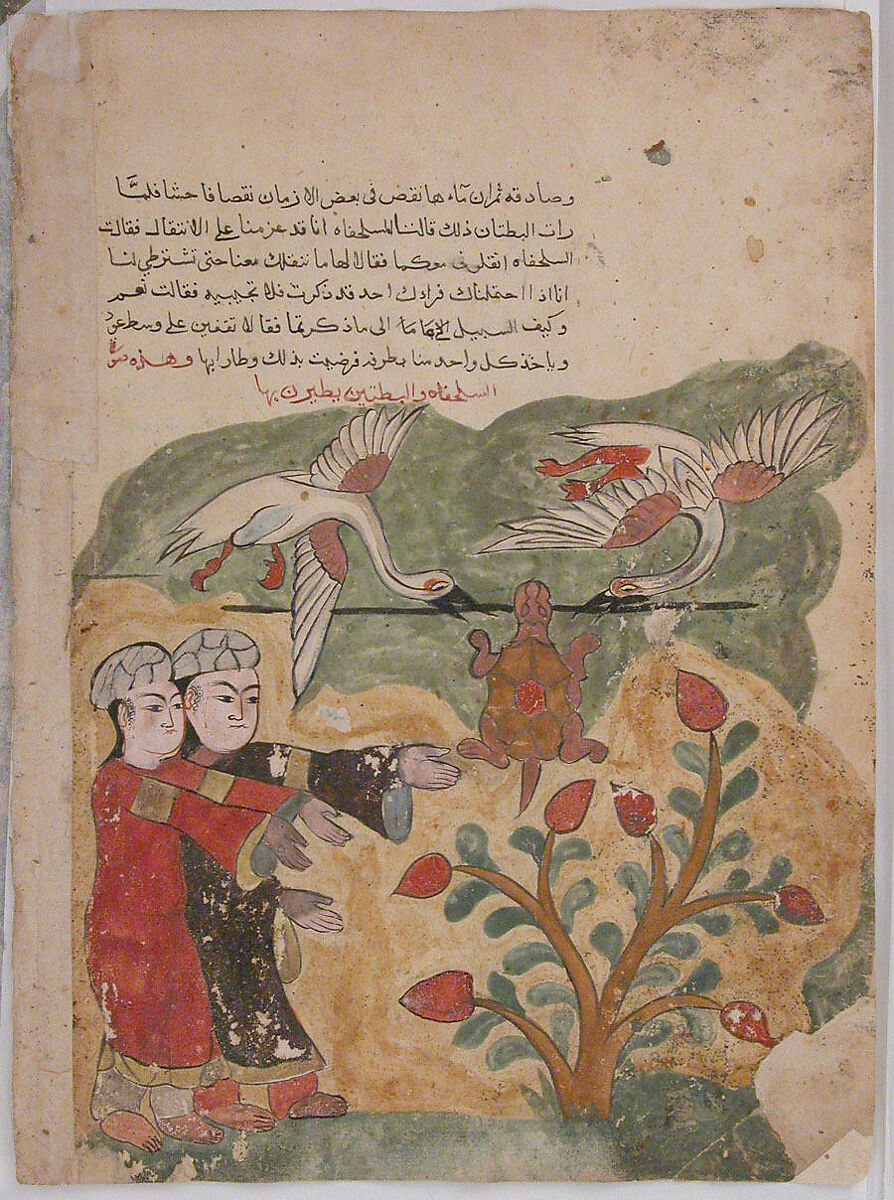 وصادقه ثم ان ماءها نقض فى بعض الازمان نقصا فاحشا فلمّا
رات البطتان ذلك قالتا للسلحفاه انا قد عزمنا على الانتقال فقالت
السلحفاه انقلونى معكما فقالا لها ما ننقلك معنا حتى تشترطي لنا
انا اذا احتملناك فراك احد فذكرك فلا تجيبيه فقالت نعم
وكيف السبيل الى ما ذكرتما فقالا تقضين على وسط عود
وياخذ كل واحد منا بطرفه فرضيت بذلك وطارا بها وهذه صورة
السلحفاه والبطتين يطيرن بها